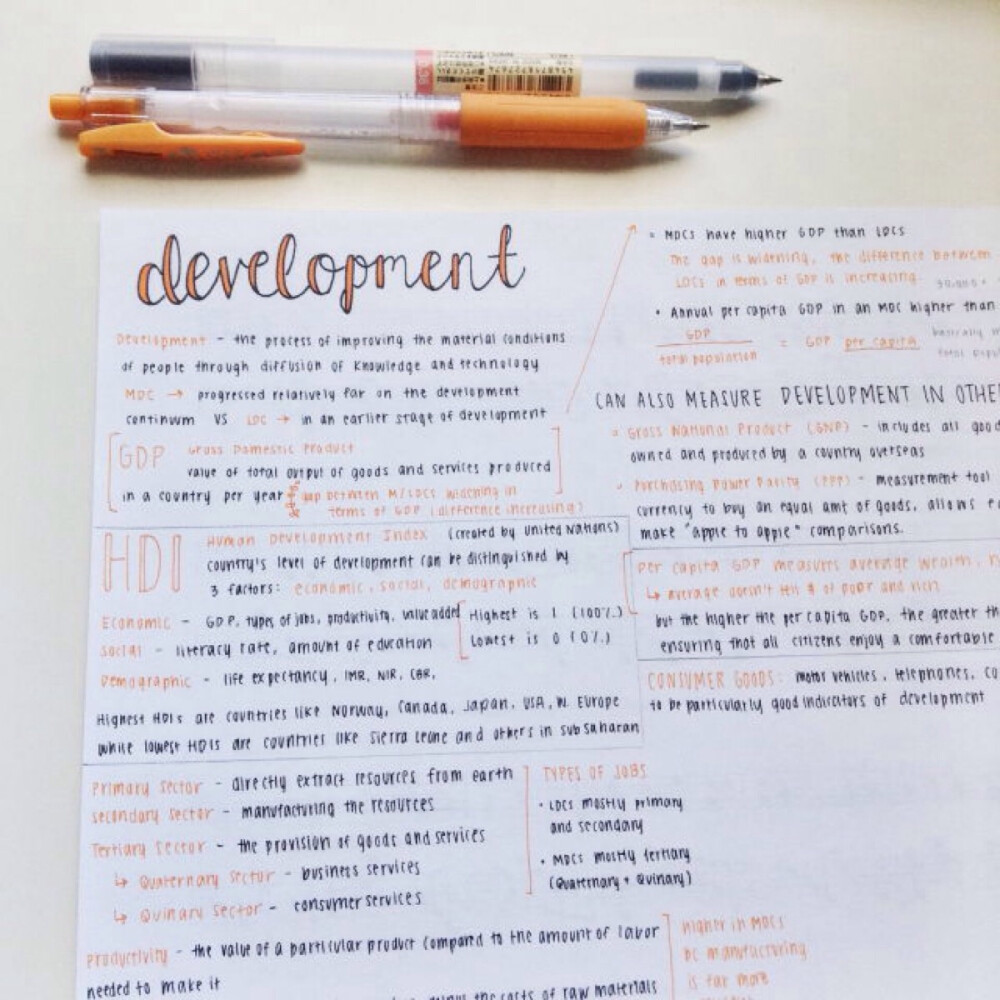 development
Development - the process of improving the material conditions
of people through diffusion of knowledge and technology
MDC → progressed relatively far on the development
continuum VS LDC → in an earlier stage of development
GDP Gross Domestic Product
value of total output of goods and services produced
in a country per year
gap between M/LDCs widening in
terms of GDP (difference increasing)
HDI Human Development Index (created by United Nations)
country's level of development can be distinguished by
3 factors: economic, social, demographic
Economic - GDP, types of jobs, productivity, value added
Social - literacy rate, amount of education
Demographic - life expectancy, IMR, NIR, CBR,
Highest is 1 (100%)
Lowest is 0 (0%)
Highest HDIs are countries like Norway, Canada, Japan, USA, W. Europe
while lowest HDIs are countries like Sierra Leone and others in sub saharan
Primary Sector - directly extract resources from earth
Secondary Sector - manufacturing the resources
Tertiary Sector - the provision of goods and services
↳ Quaternary Sector - business services
↳ Quinary Sector - consumer services
TYPES OF JOBS
• LDCs mostly primary
and secondary
• MDCs mostly tertiary
(Quaternary + Quinary)
Productivity - the value of a particular product compared to the amount of labor
needed to make it
the costs of raw materials
higher in MDCs
bc manufacturing
is far more
• MDCs have higher GDP than LDCs
The gap is widening, the difference between
LDCs in terms of GDP is increasing.
• Annual per capita GDP in an MDC higher than
GDP
total population
= GDP per capita
basically
CAN ALSO MEASURE DEVELOPMENT IN
• Gross National Product (GNP) - includes all
owned and produced by a country overseas
• Purchasing Power Parity (PPP) - measurement tool
currency to buy an equal amt of goods, allows
make "apple to apple" comparisons.
Per capita GDP measures average wealth,
↳ average doesn't tell # of poor and rich
but the higher the per capita GDP, the greater
ensuring that all citizens enjoy a comfortable
CONSUMER GOODS: motor vehicles, telephones,
to be particularly good indicators of development